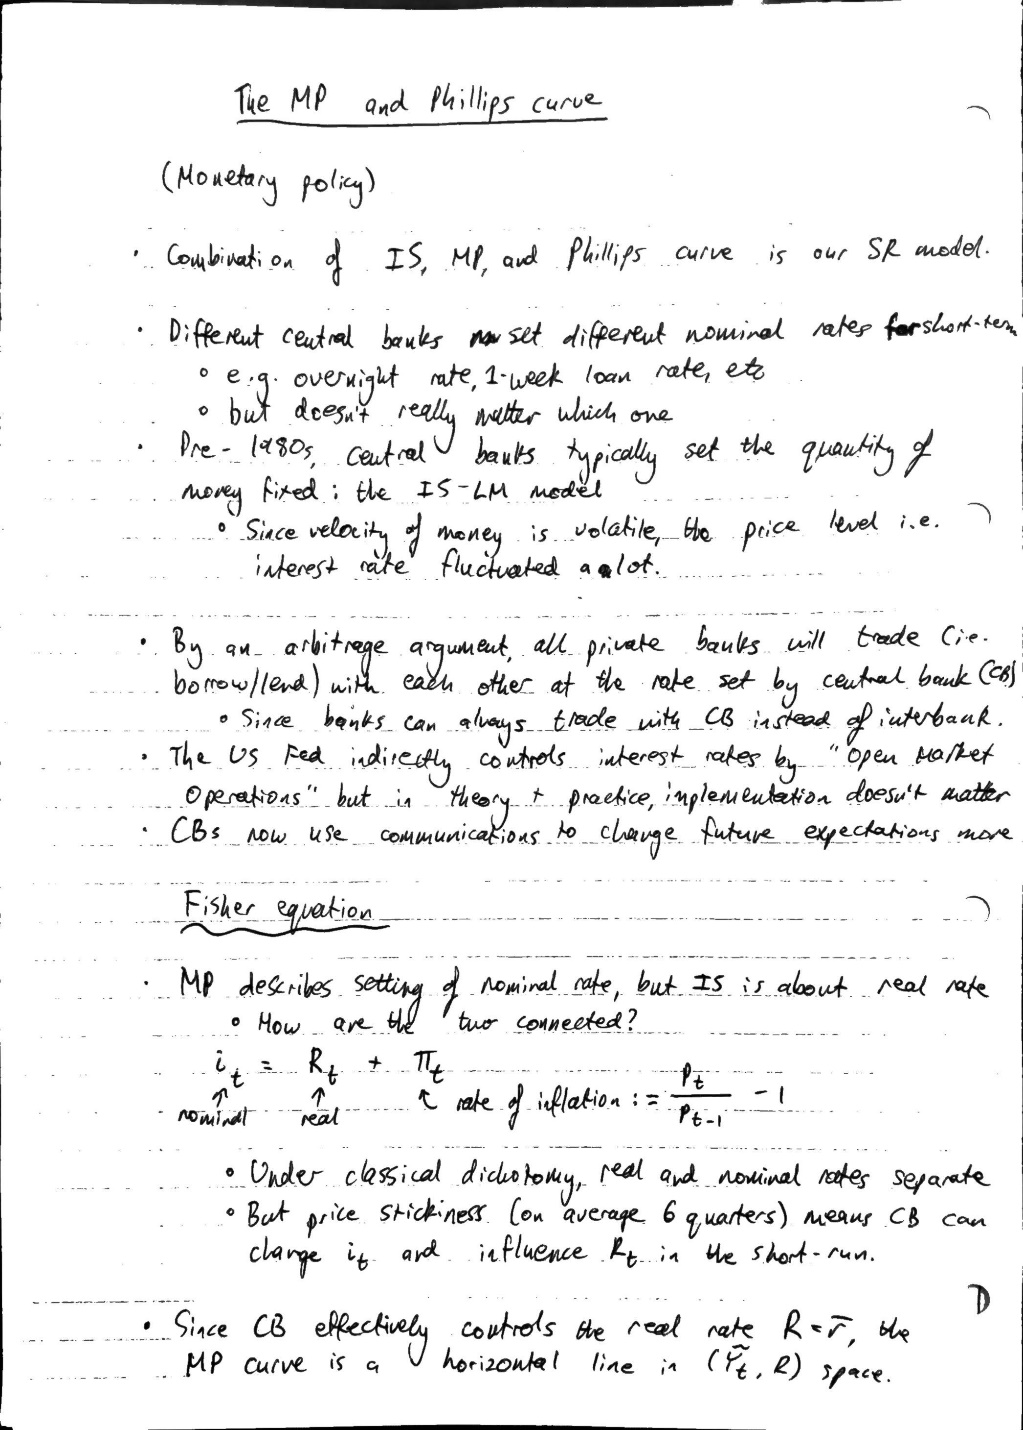 The MP and Phillips curve
(Monetary policy)
· Combination of IS, MP, and Phillips curve is our SR model.
· Different central banks set different nominal rates for short-term
∘ e.g. overnight rate, 1-week loan rate, etc
∘ but doesn't really matter which one
· Pre-1980s, central banks typically set the quantity of
money fixed: the IS-LM model
∘ Since velocity of money is volatile, the price level i.e.
interest rate fluctuated a lot.
· By an arbitrage argument, all private banks will trade (i.e.
borrow/lend) with each other at the rate set by central bank (CB)
∘ Since banks can always trade with CB instead of interbank.
· The US Fed indirectly controls interest rates by "Open Market
Operations" but in theory + practice, implementation doesn't matter
· CBs now use communications to change future expectations more
Fisher equation
· MP describes setting of nominal rate, but IS is about real rate
∘ How are the two connected?
i_t = R_t + π_t
↑ nominal ↑ real ↑ rate of inflation := P_t / P_{t-1} - 1
∘ Under classical dichotomy, real and nominal rates separate
∘ But price stickiness (on average 6 quarters) means CB can
change i_t and influence R_t in the short-run.
· Since CB effectively controls the real rate R = r̄, the
MP curve is a horizontal line in (Ỹ_t, R) space.